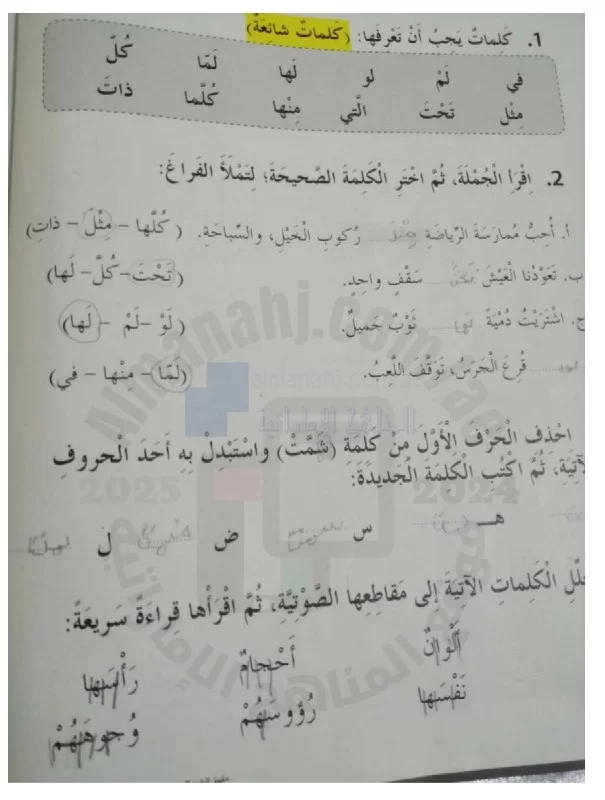 1. كَلِماتٌ يَجِبُ أَنْ تَعْرِفَها: (كَلِماتٌ شائِعَةٌ)
في لَمْ لو لَها لَمّا كُلّ
مِثْل تَحْتَ الَّتي مِنْها كُلَّما ذاتَ
2. اِقْرَأِ الْجُمْلَةَ، ثُمَّ اخْتَرِ الْكَلِمَةَ الصَّحيحَةَ؛ لِتَمْلَأَ الفَراغَ:
أ. أُحِبُّ مُمارَسَةَ الرِّياضَةِ مِثْلَ رُكوبِ الْخَيْلِ، والسِّباحَةِ. (كُلَّها – مِثْلَ – ذاتِ)
ب. تَعَوَّدْنا الْعَيْشَ سَقْفٍ واحِدٍ. (تَحْتَ – كُلَّ – لَها)
ج. اشْتَرَيْتُ دُمْيَةً لها ثَوْبٌ جَميلٌ. (لَوْ – لَمْ – لَها)
قُرِعَ الْجَرَسُ، تَوَقَّفَ اللَّعِبُ. (لَمّا – مِنْها – في)
احْذِفِ الْحَرْفَ الْأَوَّلَ مِنْ كَلِمَةِ (شَمَّتْ) واسْتَبْدِلْ بِهِ أَحَدَ الْحروفِ
الْآتِيَةِ، ثُمَّ اكْتُبِ الْكَلِمَةَ الْجَديدَةَ:
هـ س ض ل
حَلِّلِ الْكَلِماتِ الْآتِيَةَ إِلى مَقاطِعِها الصَّوْتِيَّةِ، ثُمَّ اقْرَأْها قِراءَةً سَريعَةً:
أَلْوانٌ أَحْجامٌ رَأْسَها
نَفْسَها رُؤوسَهُمْ وُجوهَهُمْ
almanahj.com/ae
المناهج الإماراتية
2024 2025
موقع المناهج الإماراتية